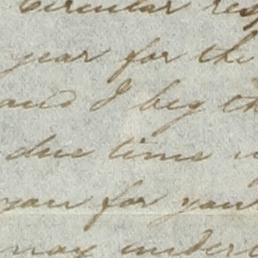 Circular res
year for the
and I beg th
due time
you for you
may undert